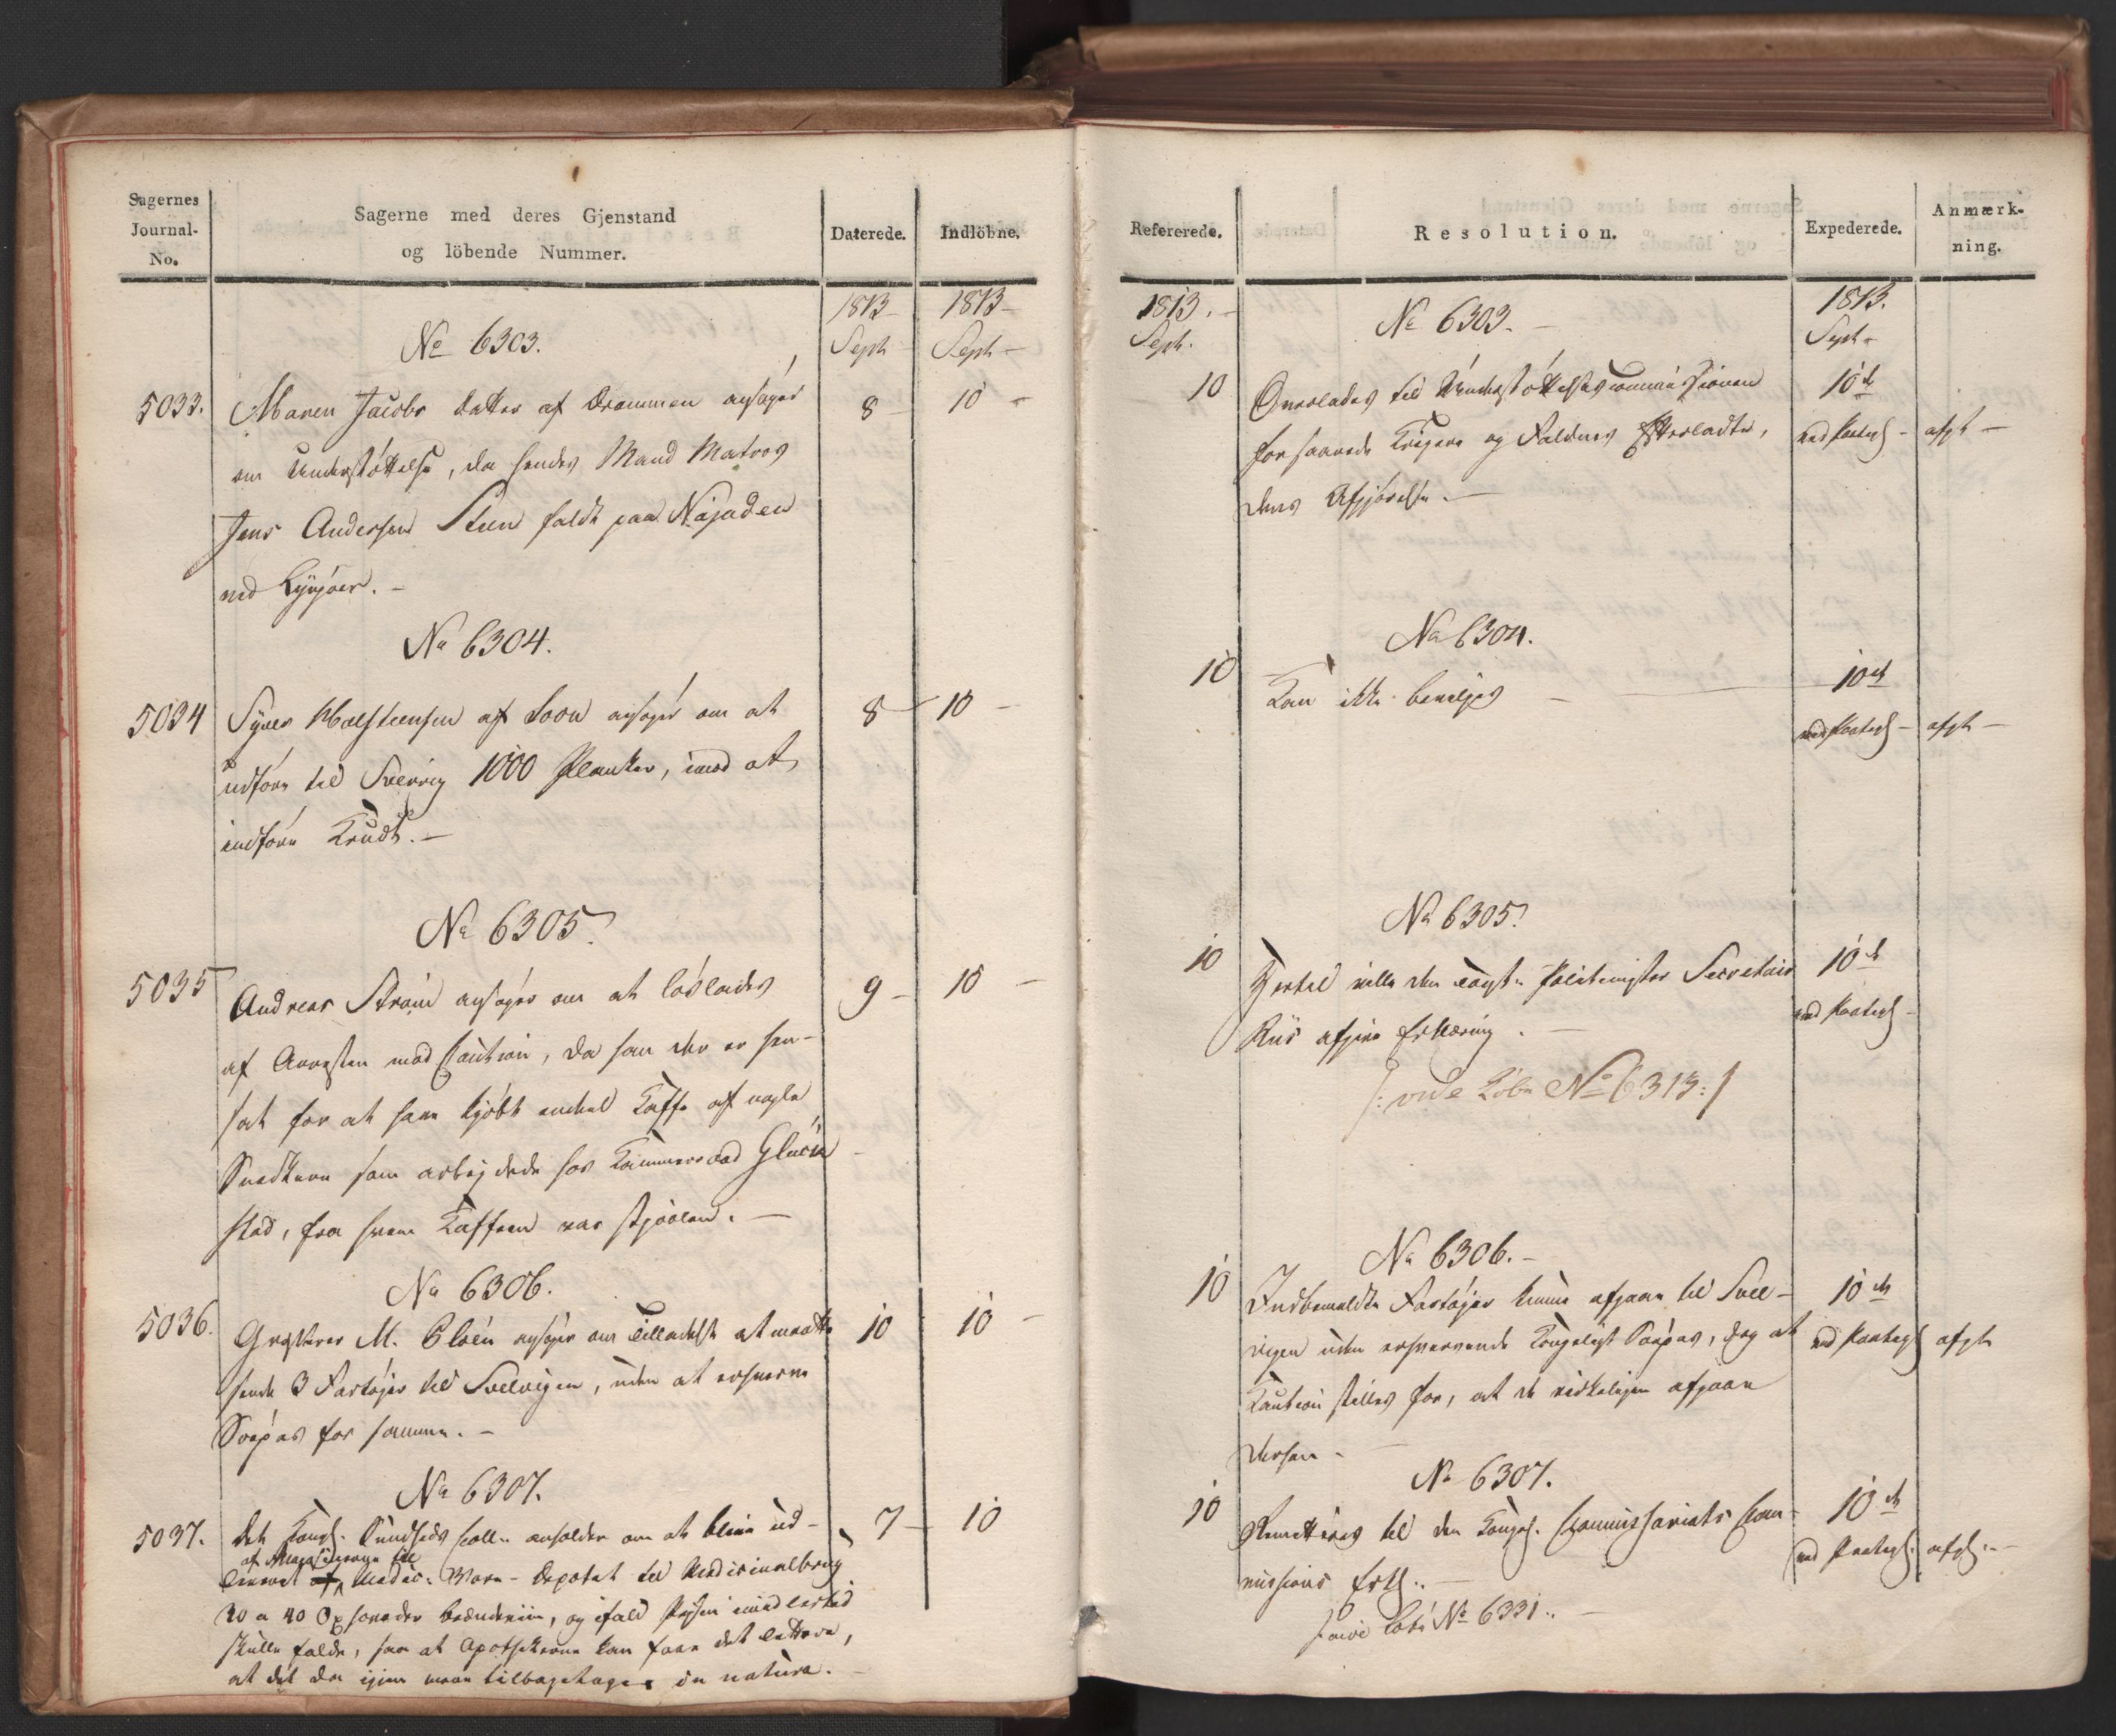 Sagernes
Journal-
No.
Sagerne med deres Gjenstand
og löbende Nummer.
Daterede.
Indlöbne.
1813
Sept
1813
Sept
No 6303.
5033.
Maren Jacobs datter af Drammen ansøger
om Understøttelse, da hendes Mand Matros
Jens Andersen Steen faldt paa Najaden
ved Lyngöer.
8
10
No 6304.
5034
Syver Halsteensen af Soon ansøger om at
udføre til Sverrig 1000 Planker, imod at
indføre Krudt.
8
10
No 6305.
5035
Andreas Strøm ansøger om at løslades
af Arresten mod Caution, da han der er hen-
sat for at have kjøbt endeel Kaffe af nogle
Snedkere som arbejdede hos Kammerraad Glück
stad, fra hvem Kaffeen var stjaalen.
9
10
No 6306.
5036.
Grosserer M. Ploen ansøger om Tilladelse at maatte
sende 3 Fartøjer til Svelvigen, uden at erhverve
Søepas for samme.
10
10
No 6307.
5037.
Det Kongl. Sundheds Coll. anholder om at blive ud-
af til
leveret af Medic: Vare-Depotet til Medicinalbrug
20 a 40 Oxhoveder Brændeviin, og ifald Prisen imidlertid
skulle falde, saa at Apothekerne kan faae det lettere,
at det da igjen maae tilbagetages in natura.
7
10
Refererede.
Resolution.
Expederede.
Anmærk-
ning.
1813.
Sept.
1813.
Sept.
No 6303.
10
Overlades til Understøttelsescommissionen
for saarede Krigere og Faldnes Efterladte,
dens Afgjørelse.
10de
ved Paategn
afgt
No 6304.
10
Kan ikke bevilges
10de
ved Paategn
afgt
No 6305.
10
Hertil ville den const. Politimester Secretair
Riis afgive Erklæring.
/: vide Løbe No 6313:/
10de
ved Paategn
No 6306.
10
Indbemeldte Fartøjer kunne afgaae til Svel-
vigen uden erhvervende Kongeligt Søepas, dog at
Caution stilles for, at de virkeligen afgaae
derhen
10de
ved Paategn
afgt
No 6307.
10
Remitteres til den Kongel. Commissariats Com-
missions Erkl.
/vide Løbe No 6331.
10de
ved Paategn.
afgt.